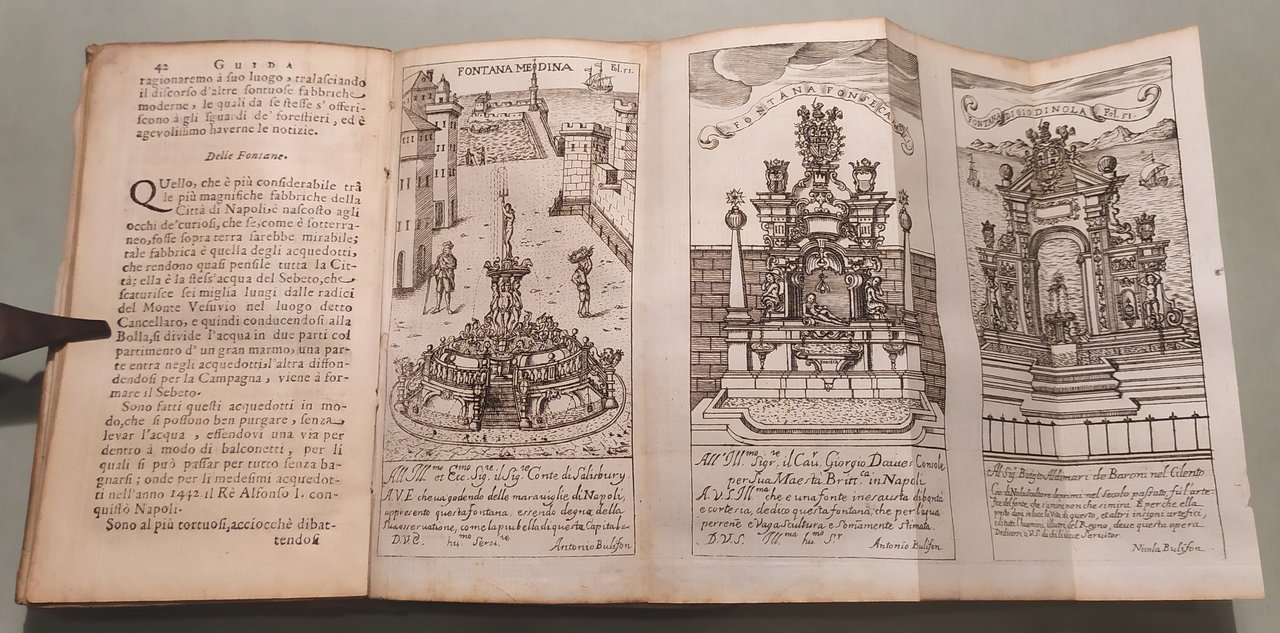 42 GUIDA
ragionaremo à suo luogo, tralasciando
il discorso d'altre sontuose fabbriche
moderne, le quali da se stesse s'offeri-
scono à gli sguardi de' forestieri, ed è
agevolissimo haverne le notizie.
Delle Fontane.
QUello, che è più considerabile trà
le più magnifiche fabbriche della
Città di Napoli, è nascosto agli
occhi de'curiosi, che se, come è sotterra-
neo, fosse sopra terra sarebbe mirabile;
tale fabbrica è quella degli acquedotti,
che rendono quasi pensile tutta la Cit-
tà; ella è la stess'acqua del Sebeto, che
scaturisce sei miglia lungi dalle radici
del Monte Vesuvio nel luogo detto
Cancellaro, e quindi conducendosi alla
Bolla, si divide l'acqua in due parti col
partimento d'un gran marmo, una par-
te entra negli acquedotti, l'altra diffon-
dendosi per la Campagna, viene à for-
mare il Sebeto.
Sono fatti questi acquedotti in mo-
do, che si possono ben purgare, senza
levar l'acqua, essendovi una via per
dentro à modo di balconetti, per li
quali si può passar per tutto senza ba-
gnarsi; onde per li medesimi acquedot-
ti nell'anno 1442 il Rè Alfonso I. con-
quistò Napoli.
Sono al più tortuosi, acciocchè dibat-
tendosi
FONTANA MEDINA Fol. 51.
All' Ill.mo et Ecc.mo Sig.re il Sig.re Conte di Salisbury
A.V.E che va godendo delle maraviglie di Napoli,
appresento questa fontana, essendo degna della
sua osservatione, come la piu bella di questa Capitale
D.V.E. hu.mo Serv.re Antonio Bulifon
FONTANA FONSECA
All' Ill.mo Sigr.re il Cav. Giorgio Davies Console
per Sua Maestà Britt.ca in Napoli
A.V.S. Ill.ma che e una fonte inesausta di bontà
e cortesia, dedico questa fontana, che per l'qua
perrene e Vaga Scultura e Somamente Stimata
D.V.S. Ill.ma hu.mo S.r Antonio Bulifon
FONTANA DI GIO DI NOLA Fol. 51.
Al Sig. Biagio Aldimari de Baroni nel Cilento
Gio: di Nola Scultore de primi nel secolo passato fù l'arte-
fice del fonte, che
presto darà in luce la Vita di questo, et altri insigni artefici,
e di tutti l'huomini illustri del Regno, deve questa opera
dedicarsi à V.S. da chi l'è Servitor.
Nicola Bulifon